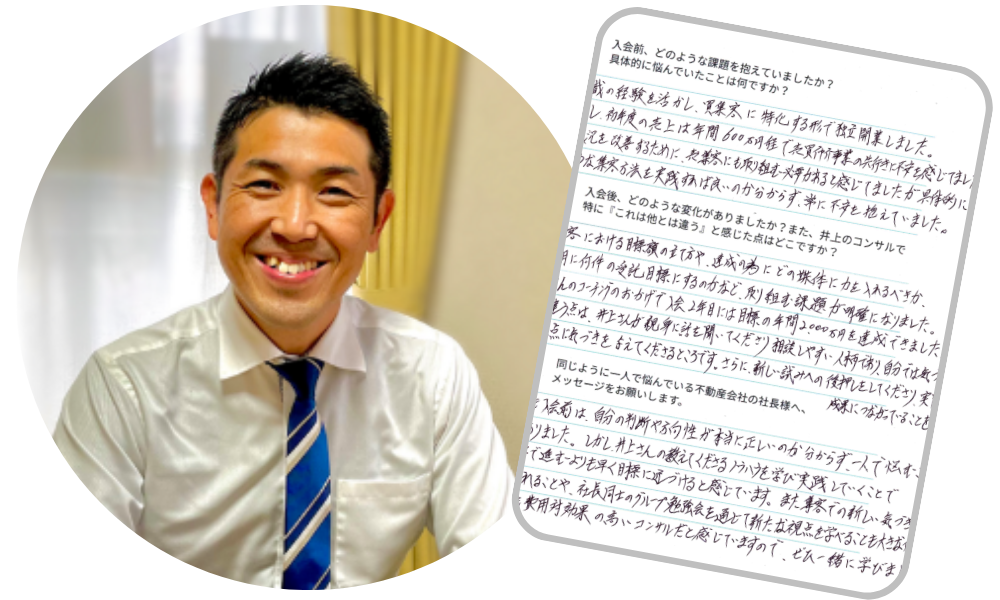 入会前、どのような課題を抱えていましたか？
具体的に悩んでいたことは何ですか？
の経験を活かし、買集客に特化する形で独立開業しました。
し、初年度の売上は年間600万円程で売買仲介事業の先行きに不安を感じてまし
況を改善するために、売集客にも取り組む必要があると感じてましたが具体的に
な集客方法を実践すれば良いのか分からず、常に不安を抱えていました。
入会後、どのような変化がありましたか？また、井上のコンサルで
特に『これは他とは違う』と感じた点はどこですか？
客における目標額の立て方や、達成の為にどの媒体に力を入れるべきか、
月に何件の受託目標にするのかなど、取り組む課題が明確になりました。
んのコーチングのおかげで入会2年目には目標の年間2000万円を達成できました
違う点は、井上さんが親身に話を聞いてくださり相談しやすい人柄であり、自分では気づ
点に気づきを与えてくださるところです。さらに、新しい試みへの後押しをしてくださり、実
成果につながっていることを
同じように一人で悩んでいる不動産会社の社長様へ、
メッセージをお願いします。
入会前は自分の判断や方向性が本当に正しいのか分からず、一人で悩む
りました。しかし井上さんの教えてくださるノウハウを学び実践していくことで
で進むよりも早く目標に近づけると感じています。また集客での新しい気づき
れることや、社長同士のグループ勉強会を通じて新たな視点を学べることも大きな
費用対効果の高いコンサルだと感じていますので、ぜひ一緒に学びま